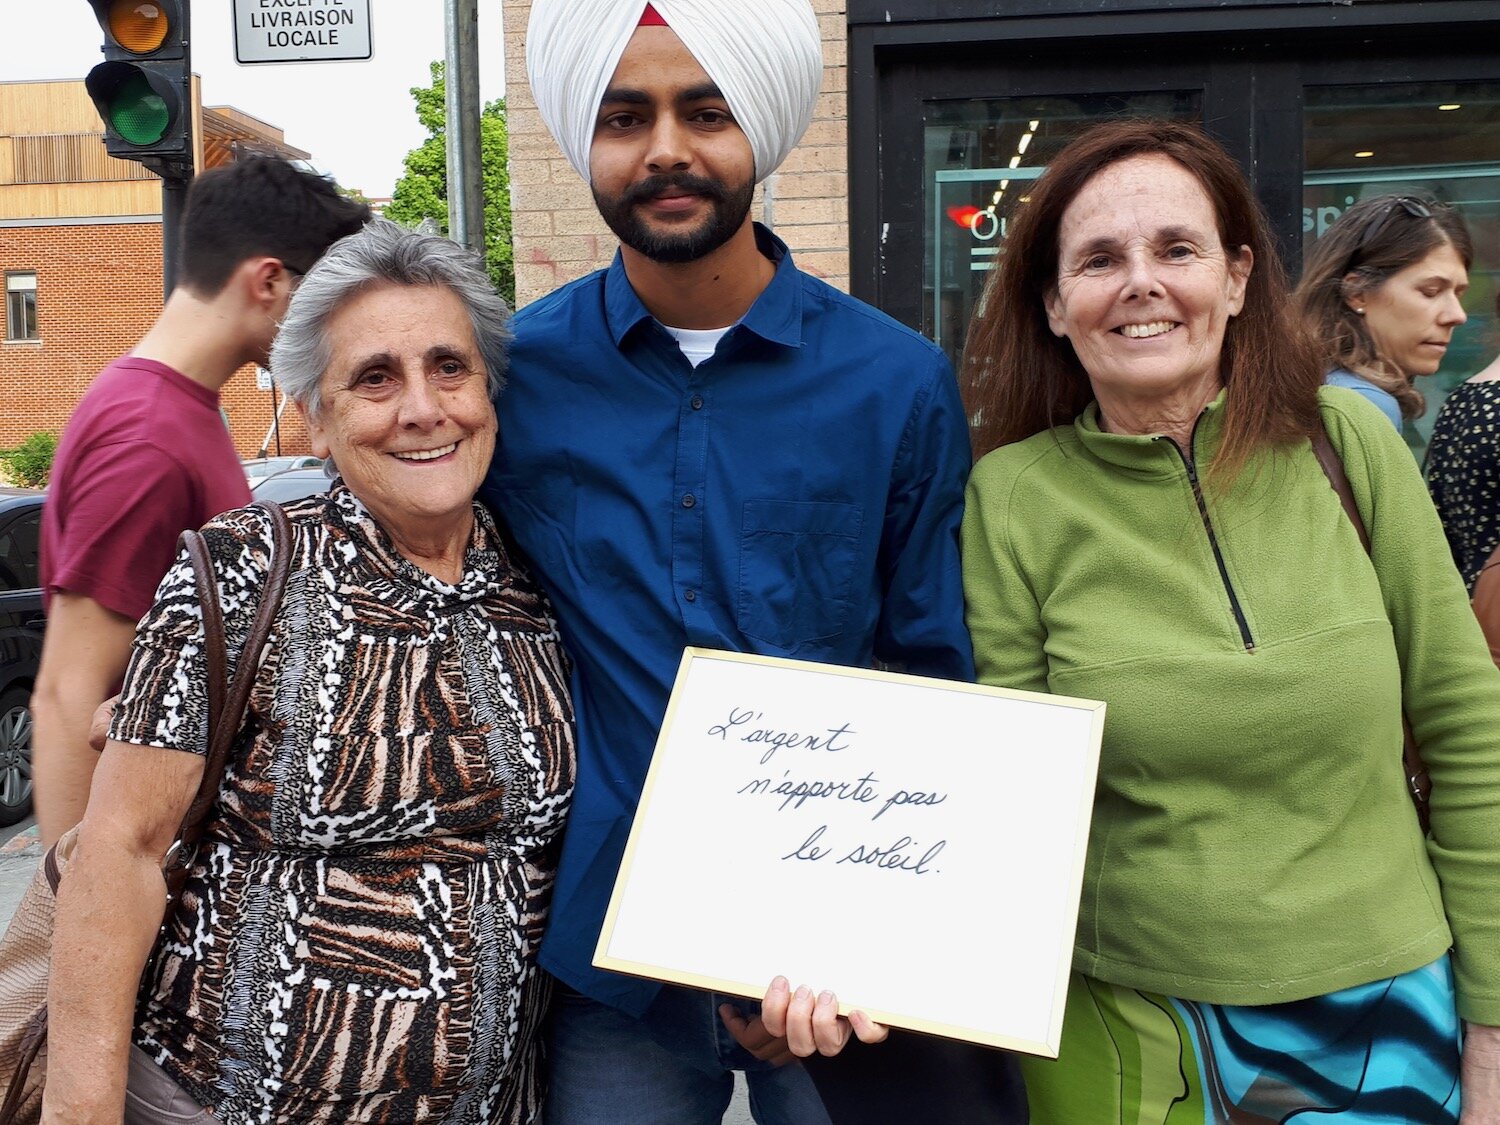 EXCEPTÉ
LIVRAISON
LOCALE
L'argent
n'apporte pas
le soleil.